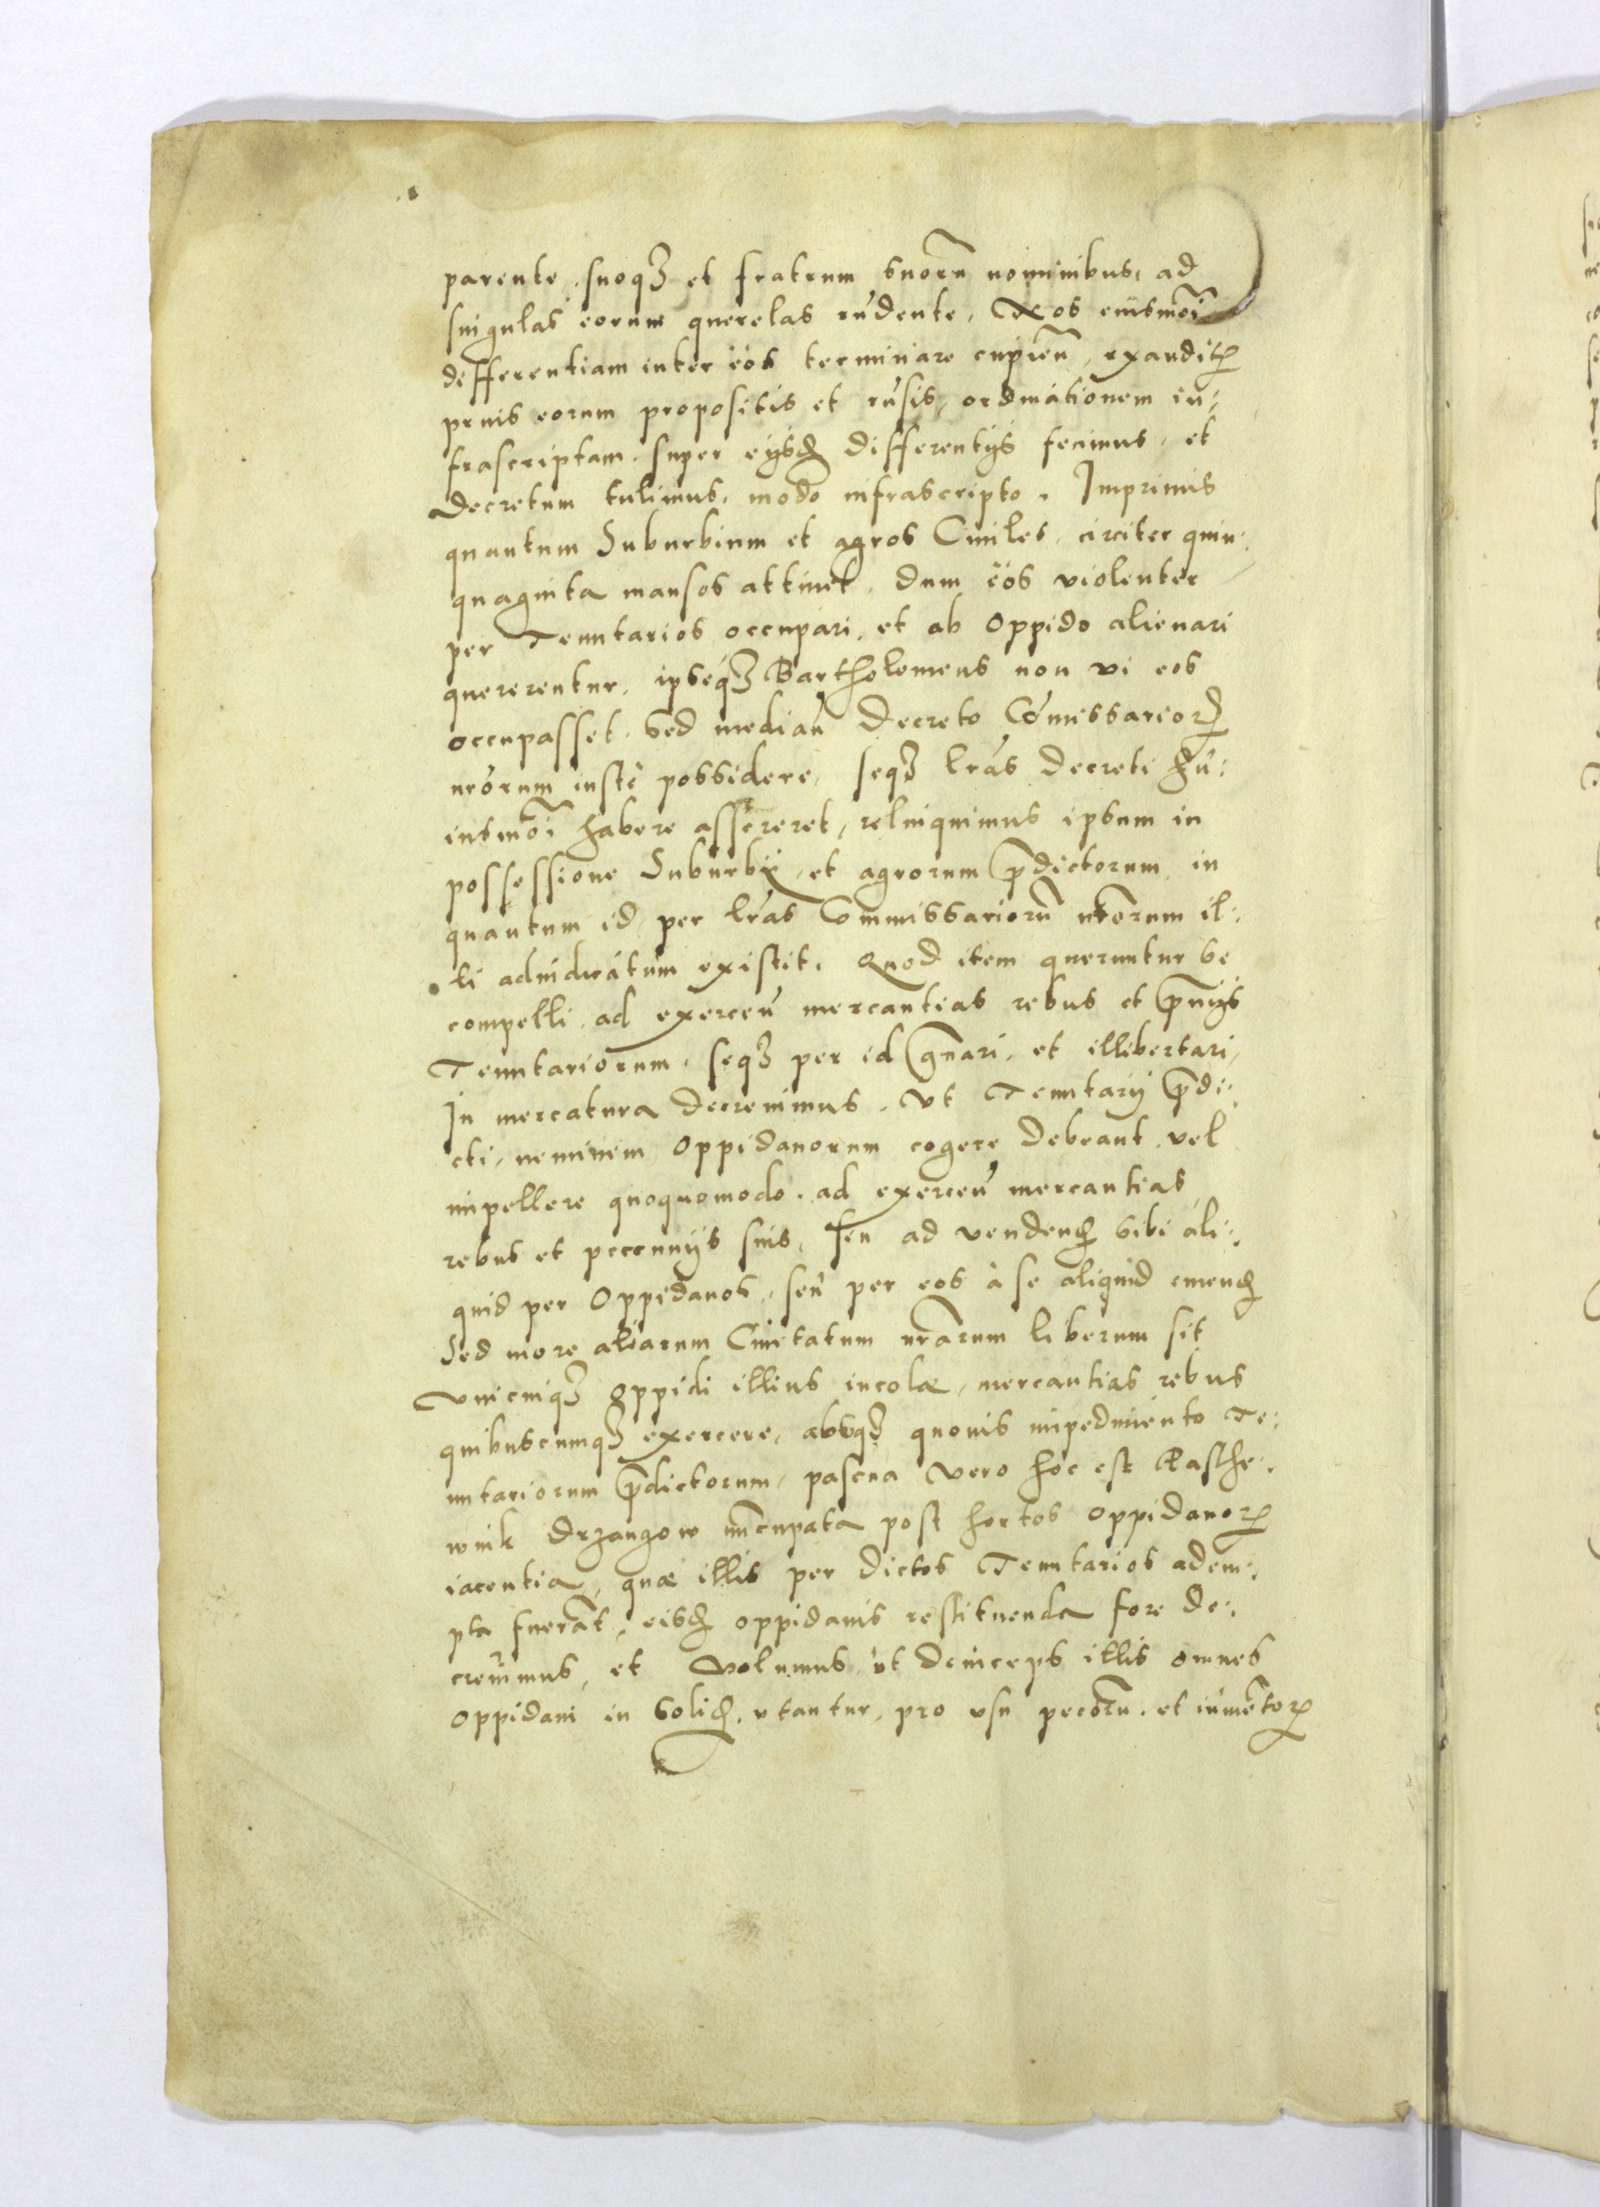 parente, suoq₃ et fratrum suorū nominibus, ad
singulas eorum querelas rn̄dente, Nos eiusmōi
defferentiam inter eos terminare cupien̄, exauditꝭ
prius eorum propositis et rn̄sis, ordinationem in:
frascriptam super eijsdꝫ differentijs fecimus, et
decretum tulimus, modo infrascripto. Imprimis
quantum Suburbium et agros Ciuiles, circiter quin:
quaginta mansos attinet, dum eos violenter
per Tenutarios occupari, et ab Oppido alienari
quererentur, ipseq₃ Bartholomeus non vi eos
occupasset, sed median̄ decreto Com̄issarioꝝ
nrōrum iuste possidere, seq₃ lrās decreti hu:
iusmōi habere assereret, relinquimus ipsum in
possessione Suburbij, et agrorum p̄dictorum, in
quantum id per lrās Commissariorū nrōrum il:
li adiudicatum existit. Quod item queruntur se
compelli ad exercen̄ mercantias rebus et p̄nijs
Tenutariorum, seq₃ per id gr̄auari, et illibertari,
In mercatura decreuimus, Vt Tenutarij p̄di:
cti, neminem Oppidanorum cogere debeant vel
impellere quoquomodo, ad exercen̄ mercantias
rebus et peccunijs suis, seu ad vendendꝫ sibi ali:
quid per Oppidanos, seu per eos à se aliquid emendꝫ
Sed more aliarum Ciuitatum nrārum liberum sit
vnicuiq₃ Oppidi illius incolæ, mercantias rebus
quibuscumq₃ exercere, absq₃ quouis impedimento Te:
nutariorum p̄dictorum, pascua vero hoc est Kasche:
wnik Drzangow nūcupata post hortos Oppidanoꝝ
iacentia, quæ illis per dictos Tenutarios adem:
pta fuerāt, eisdꝫ oppidanis restituenda fore de:
creuimus, et volumus, vt deinceps illis omnes
oppidani in solidꝫ, vtantur, pro vsu pecorū et iumētoꝝ